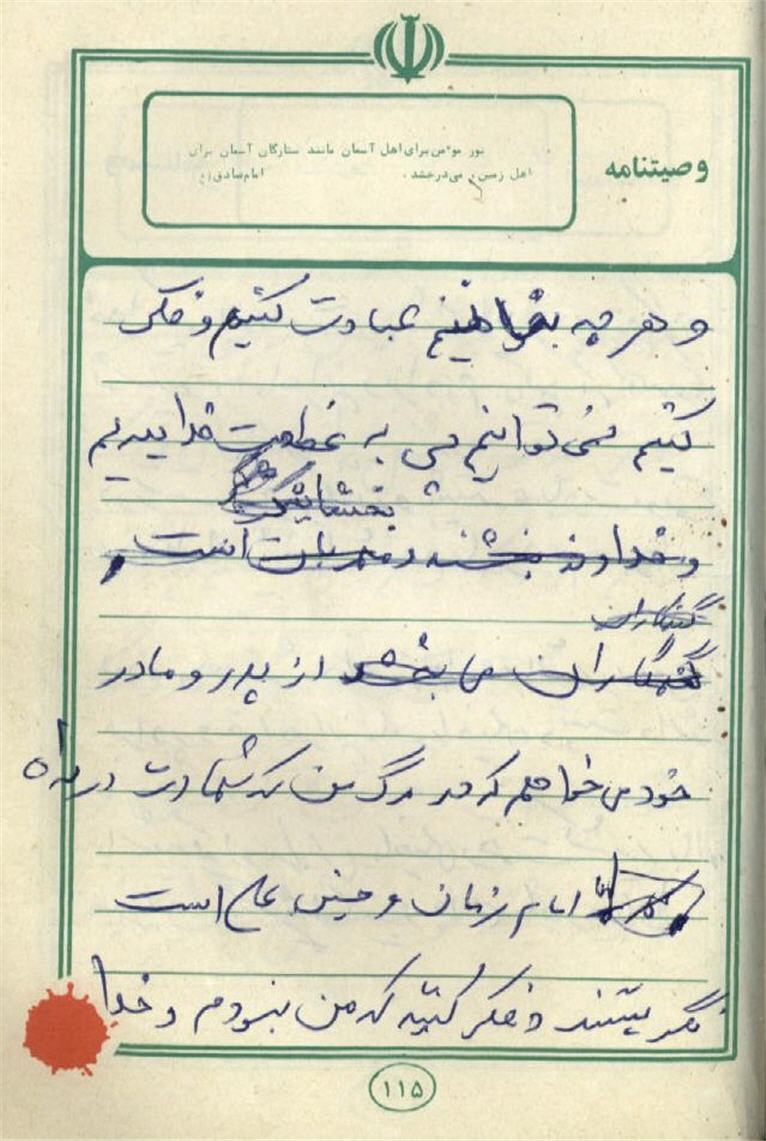 وصیتنامه
نور مؤمن برای اهل آسمان مانند ستارگان آسمان برای
اهل زمین، می‌درخشد. امام صادق (ع)
و هر چه بخواهیم عبادت کنیم و فکر
کنیم نمی توانیم پی به عظمت خدا ببریم
بخشایشگر
و خداوند بخشنده و مهربان است
گنهکاران
گنهکاران می بخشد از پدر و مادر
خود می خواهم که در مرگ من که شهادت در راه
امام زمان و حسین علی است
نگریستند و فکر کنید که من نبودم و خدا
۱۱۵